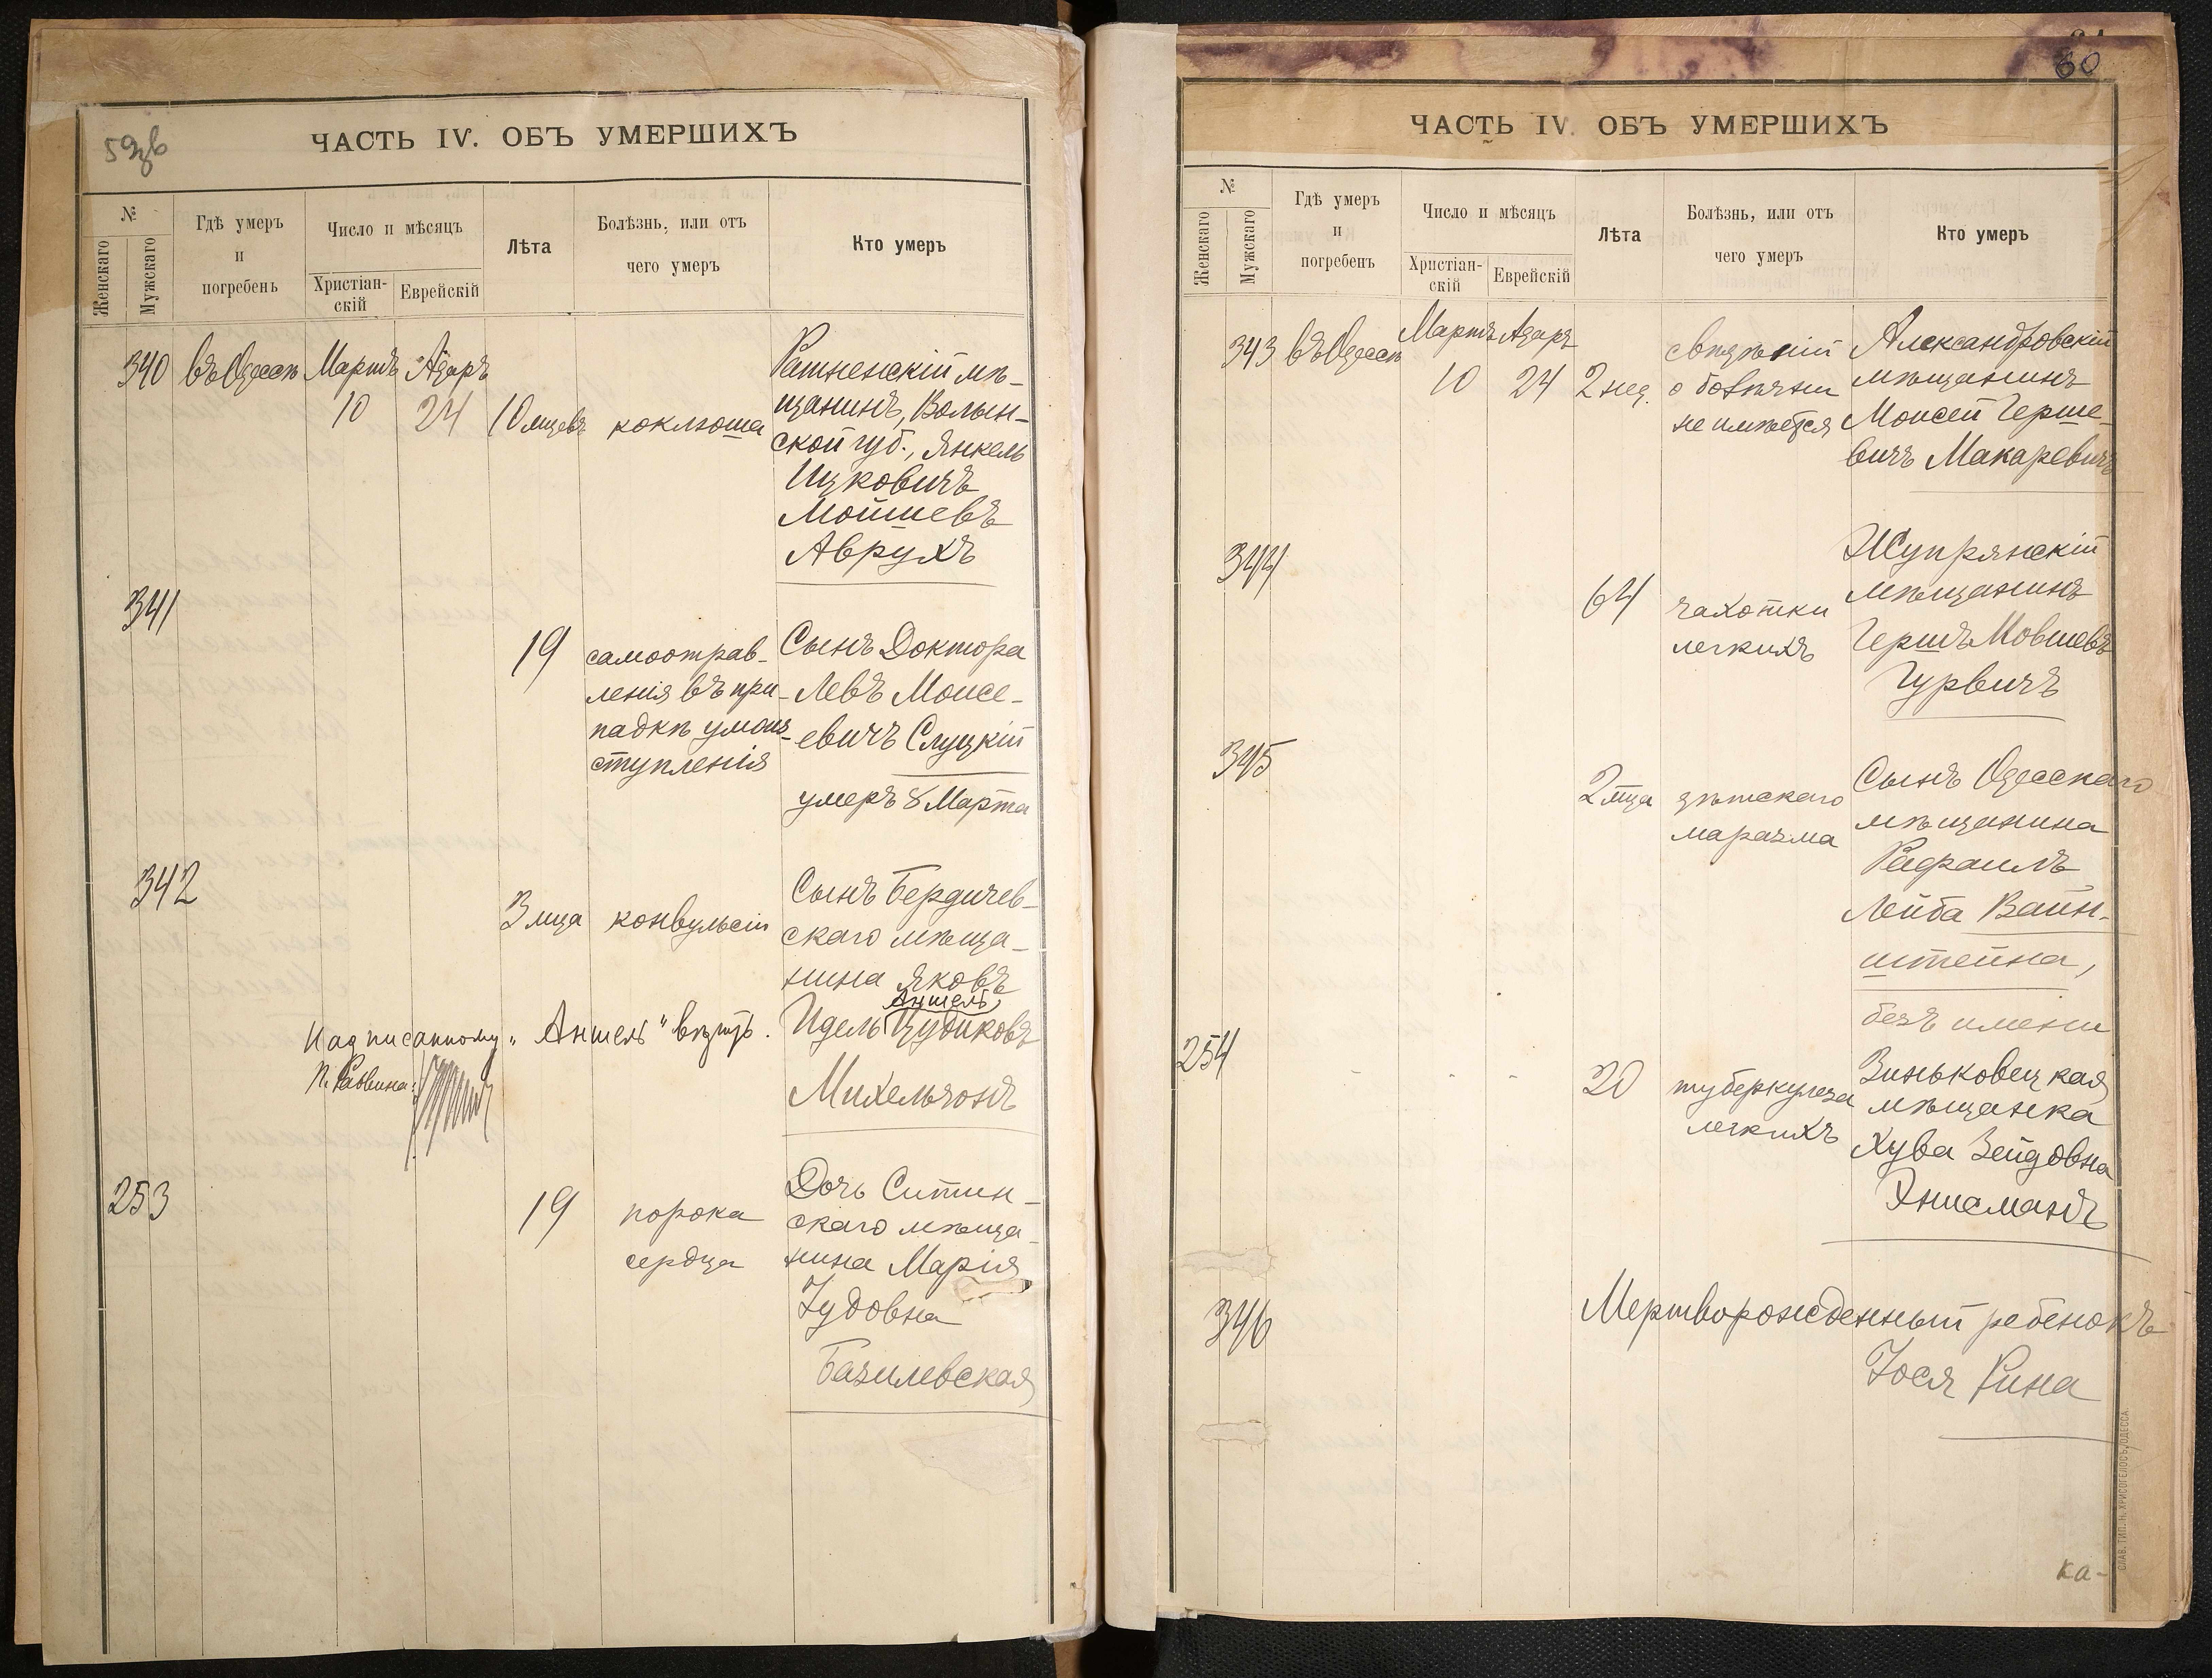 59зв
ЧАСТЬ IV. ОБЪ УМЕРШИХЪ
№
Женскаго
Мужскаго
Гдѣ умеръ
и
погребенъ
Число и мѣсяцъ
Христіан-
скій
Еврейскій
Лѣта
Болѣзнь, или отъ
чего умеръ
Кто умеръ
340 въ Одессѣ Мартъ Адаръ
10 24 10 мцевъ коклюша
Ратненскій мѣ-
щанинъ, Волын-
ской губ., Янкель
Ицковичъ
Мойшевъ
Аврухъ
341
19
самоотрав-
ленія въ при-
падкѣ умоиз-
ступленія
Сынъ Доктора
Левъ Моисе-
евичъ Слуцкій
умеръ 8 Марта
342
3 мца конвульсіи
Сынъ Бердичев-
скаго мѣща-
нина Яковъ
Аншель
Идель Цудиковъ
Михельзонъ
Надписанному „Аншель“ вѣрить.
П. Раввина:
253
19
порока
сердца
Дочь Ситин-
скаго мѣща-
нина Марія
Іудовна
Базилевская
60
ЧАСТЬ IV. ОБЪ УМЕРШИХЪ
№
Женскаго
Мужскаго
Гдѣ умеръ
и
погребенъ
Число и мѣсяцъ
Христіан-
скій
Еврейскій
Лѣта
Болѣзнь, или отъ
чего умеръ
Кто умеръ
343 въ Одессѣ Мартъ Адаръ
10 24 2 нед.
свѣдѣній
о болѣзни
не имѣется
Александровскій
мѣщанинъ
Моисей Герше-
вичъ Макаревичъ
344
64
чахотки
легкихъ
Жупрянскій
мѣщанинъ
Гершъ Мовшевъ
Гурвичъ
345
2 мца
дѣтскаго
маразма
Сынъ Одесскаго
мѣщанина
Рафаилъ
Лейба Вайн-
штейна,
безъ имени
254
20
туберкулеза
легкихъ
Зиньковецкая
мѣщанка
Хува Зейдовна
Энисманъ
346
Мертворожденный ребенокъ
Іося Рина
ка-
СЛАВ. ТИП. Н. ХРИСОГЕЛОСЪ, ОДЕССА